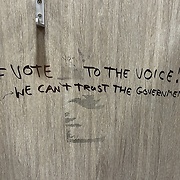 VOTE TO THE VOICE!
WE CAN'T TRUST THE GOVERNMEN